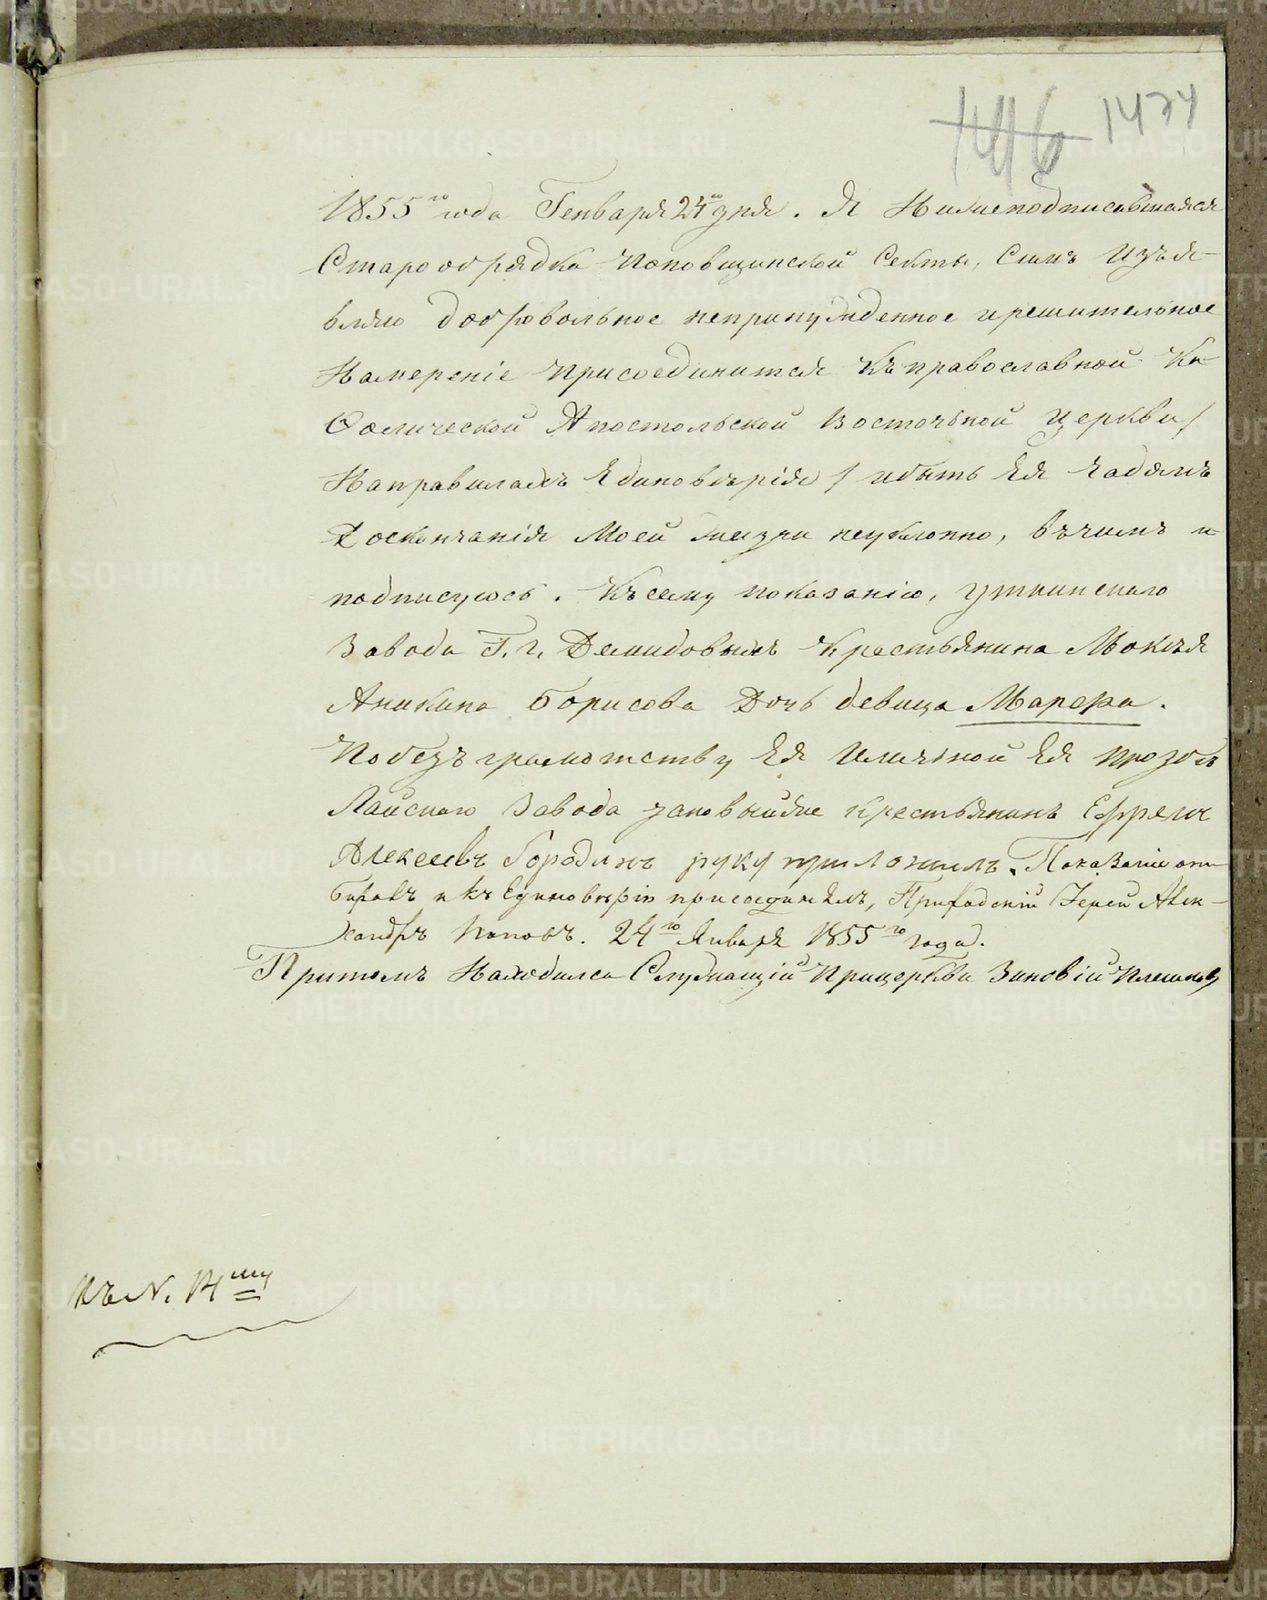 146 1474
1855го года Генваря 24го дня. Я Нижеподписавшаяся
Старообрядка Поповщинской Секты, Симъ Изъя-
вляю добровольное непринужденное и решительное
Намерение Присоединится Къ православной Ка-
Ѳолической Апостольской Восточьной Церкви /
На правилахъ Единоверiя / и быть Ея Чадамъ
До скончанiя Моей жизни неуклонно, вчемъ и
подписуюсь. Къ сему показанiю, Уткинскаго
Завода Г. г. Демидовыхъ Крестьянина Мокея
Аникина Борисова Дочь девица Марѳа.
По безъграмотству Ея Иличьной Ея прозьбе
Лайскаго Завода заповыйдие Крестьянинъ Ефремъ
Алексеевъ Бородинъ руку приложилъ. Показанiе ото-
биралъ и къ Единоверiю присоединялъ, Приходскiй Iерей Алек-
сандръ Поповъ. 24го Января 1855го года.
Притомъ Находился Служащiй Прицеркви Зиновiй Плешков
Къ N. 14му
METRIKI.GASO-URAL.RU